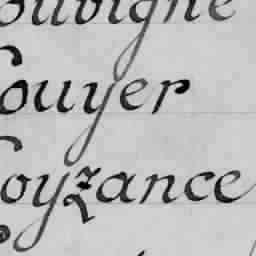 ouvigne
ouyer
oyzance